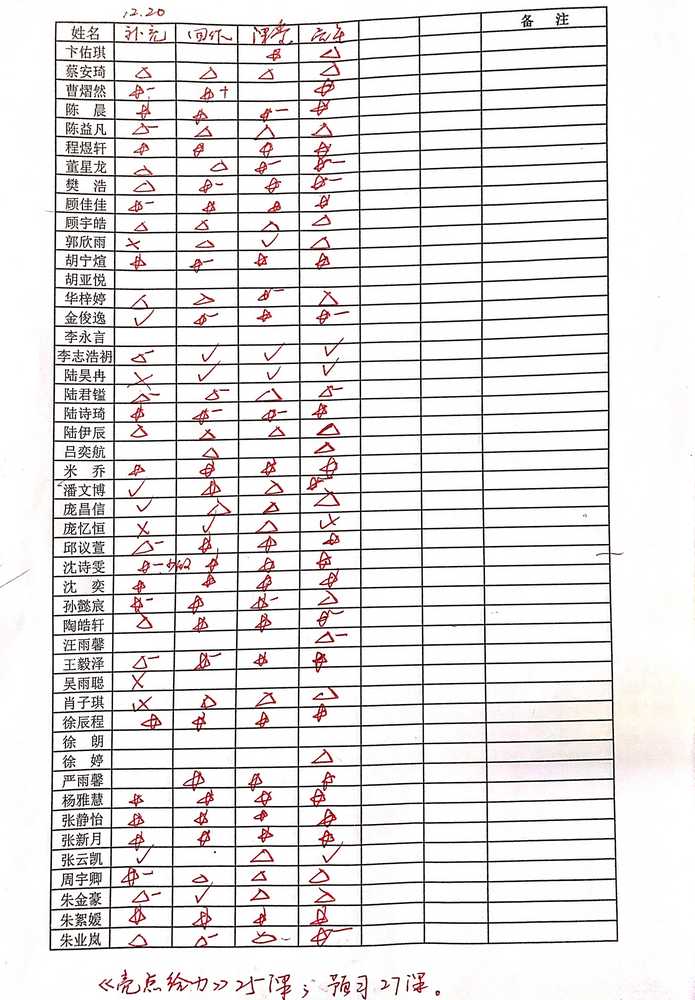 12.20
姓名 补充 回作 课堂 备注
卞佑琪 ☆ △
蔡安琦 △ △ △ △
曹熠然 ☆- ☆+ ☆
陈晨 ☆ ☆ ☆- ☆
陈益凡 △- △ △ △
程煜轩 ☆ ☆ ☆ ☆
董星龙 △ △ ☆- ☆-
樊浩 △ ☆- ☆ ☆-
顾佳佳 ☆- ☆ ☆ ☆
顾宇皓 △ △ △ △
郭欣雨 × △ ✓ △
胡宁煊 ☆ ☆- ☆ ☆
胡亚悦
华梓婷 △ △ ☆- △
金俊逸 ✓ ☆- ☆ ☆-
李永言
李志浩礽 △- ✓ ✓ ✓
陆昊冉 × ✓ ✓ ✓
陆君镒 △- △- △ △-
陆诗琦 ☆ ☆- ☆- ☆
陆伊辰 △ △ △ △
吕奕航 △ △
米乔 ☆ ☆ ☆ ☆
潘文博 ✓ ☆ △ ☆-
庞昌信 ✓ △ △ △
庞忆恒 × ✓ △ ×
邱议萱 △- ☆ ☆ ☆
沈诗雯 ☆- ☆ ☆ ☆
沈奕 ☆ ☆ ☆ ☆
孙懿宸 ☆- ☆ ☆- △
陶皓轩 △ ☆ ☆ ☆-
汪雨馨 △-
王毅泽 △- ☆- ☆ ☆
吴雨聪 ×
肖子琪 × △ △ △
徐辰程 ☆ ☆ ☆ ☆
徐朗
徐婷 △
严雨馨 ☆ ☆ ☆
杨雅慧 ☆ ☆ ☆ ☆
张静怡 ☆ ☆ ☆ ☆
张新月 ☆ ☆ ☆ ☆
张云凯 ✓ △ ✓
周宇卿 ☆- △ △ △
朱金豪 △- ✓ △ △
朱絮媛 ☆ ☆ ☆ ☆
朱业岚 △ △- △- ☆-
《亮点给力》25课；预习27课。